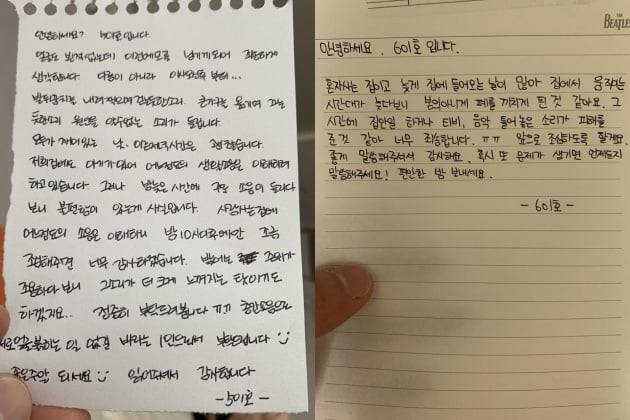 안녕하세요? 501호 입니다.
얼굴도 뵌적없는데 이런메모를 남기게되어 죄송하게
생각합니다. 다름이 아니라 이사오신 후부터...
발뒤꿈치로 내려 찍으며 걷는듯한소리, 큰가구를 옮기며 끄는
듯한소리 원인을 알수없는 소리가 들립니다.
모두가 깨어있는 낮, 이른저녁시간은 괜찮습니다.
저희집에도 아기가 있어 어느정도의 생활소음은 이해하려
하고 있습니다. 그러나 밤늦은 시간에 소음이 들리다
보니 불편함이 있는게 사실입니다. 사람사는집에
어느정도의 소음은 이해하나 밤 10시이후에만 조금
조심해주면 너무 감사하겠습니다. 밤에는 주위가
조용하다 보니 그소리가 더 크게 느껴지는 탓이기도
하겠지요... 정중히 부탁드려봅니다 ㅠㅠ 층간소음으로
서로얼굴붉히는 일 없길 바라는 1인으로서 부탁드립니다 :)
좋은주말 되세요 :) 읽어주셔서 감사합니다
-501호-
THE BEATLES
안녕하세요. 601호 입니다.
혼자사는 집이고 늦게 집에 들어오는 날이 많아 집에서 움직이는
시간대가 늦다보니 본의아니게 폐를 끼치게 된 것 같아요. 그
시간에 집안일 하거나 티비, 음악 틀어놓은 소리가 피해를
준 것 같아 너무 죄송합니다. ㅠㅠ 앞으로 조심하도록 할게요.
좋게 말씀해주셔서 감사해요. 혹시 또 문제가 생기면 언제든지
말씀해주세요! 편안한 밤 보내세요.
- 601호 -